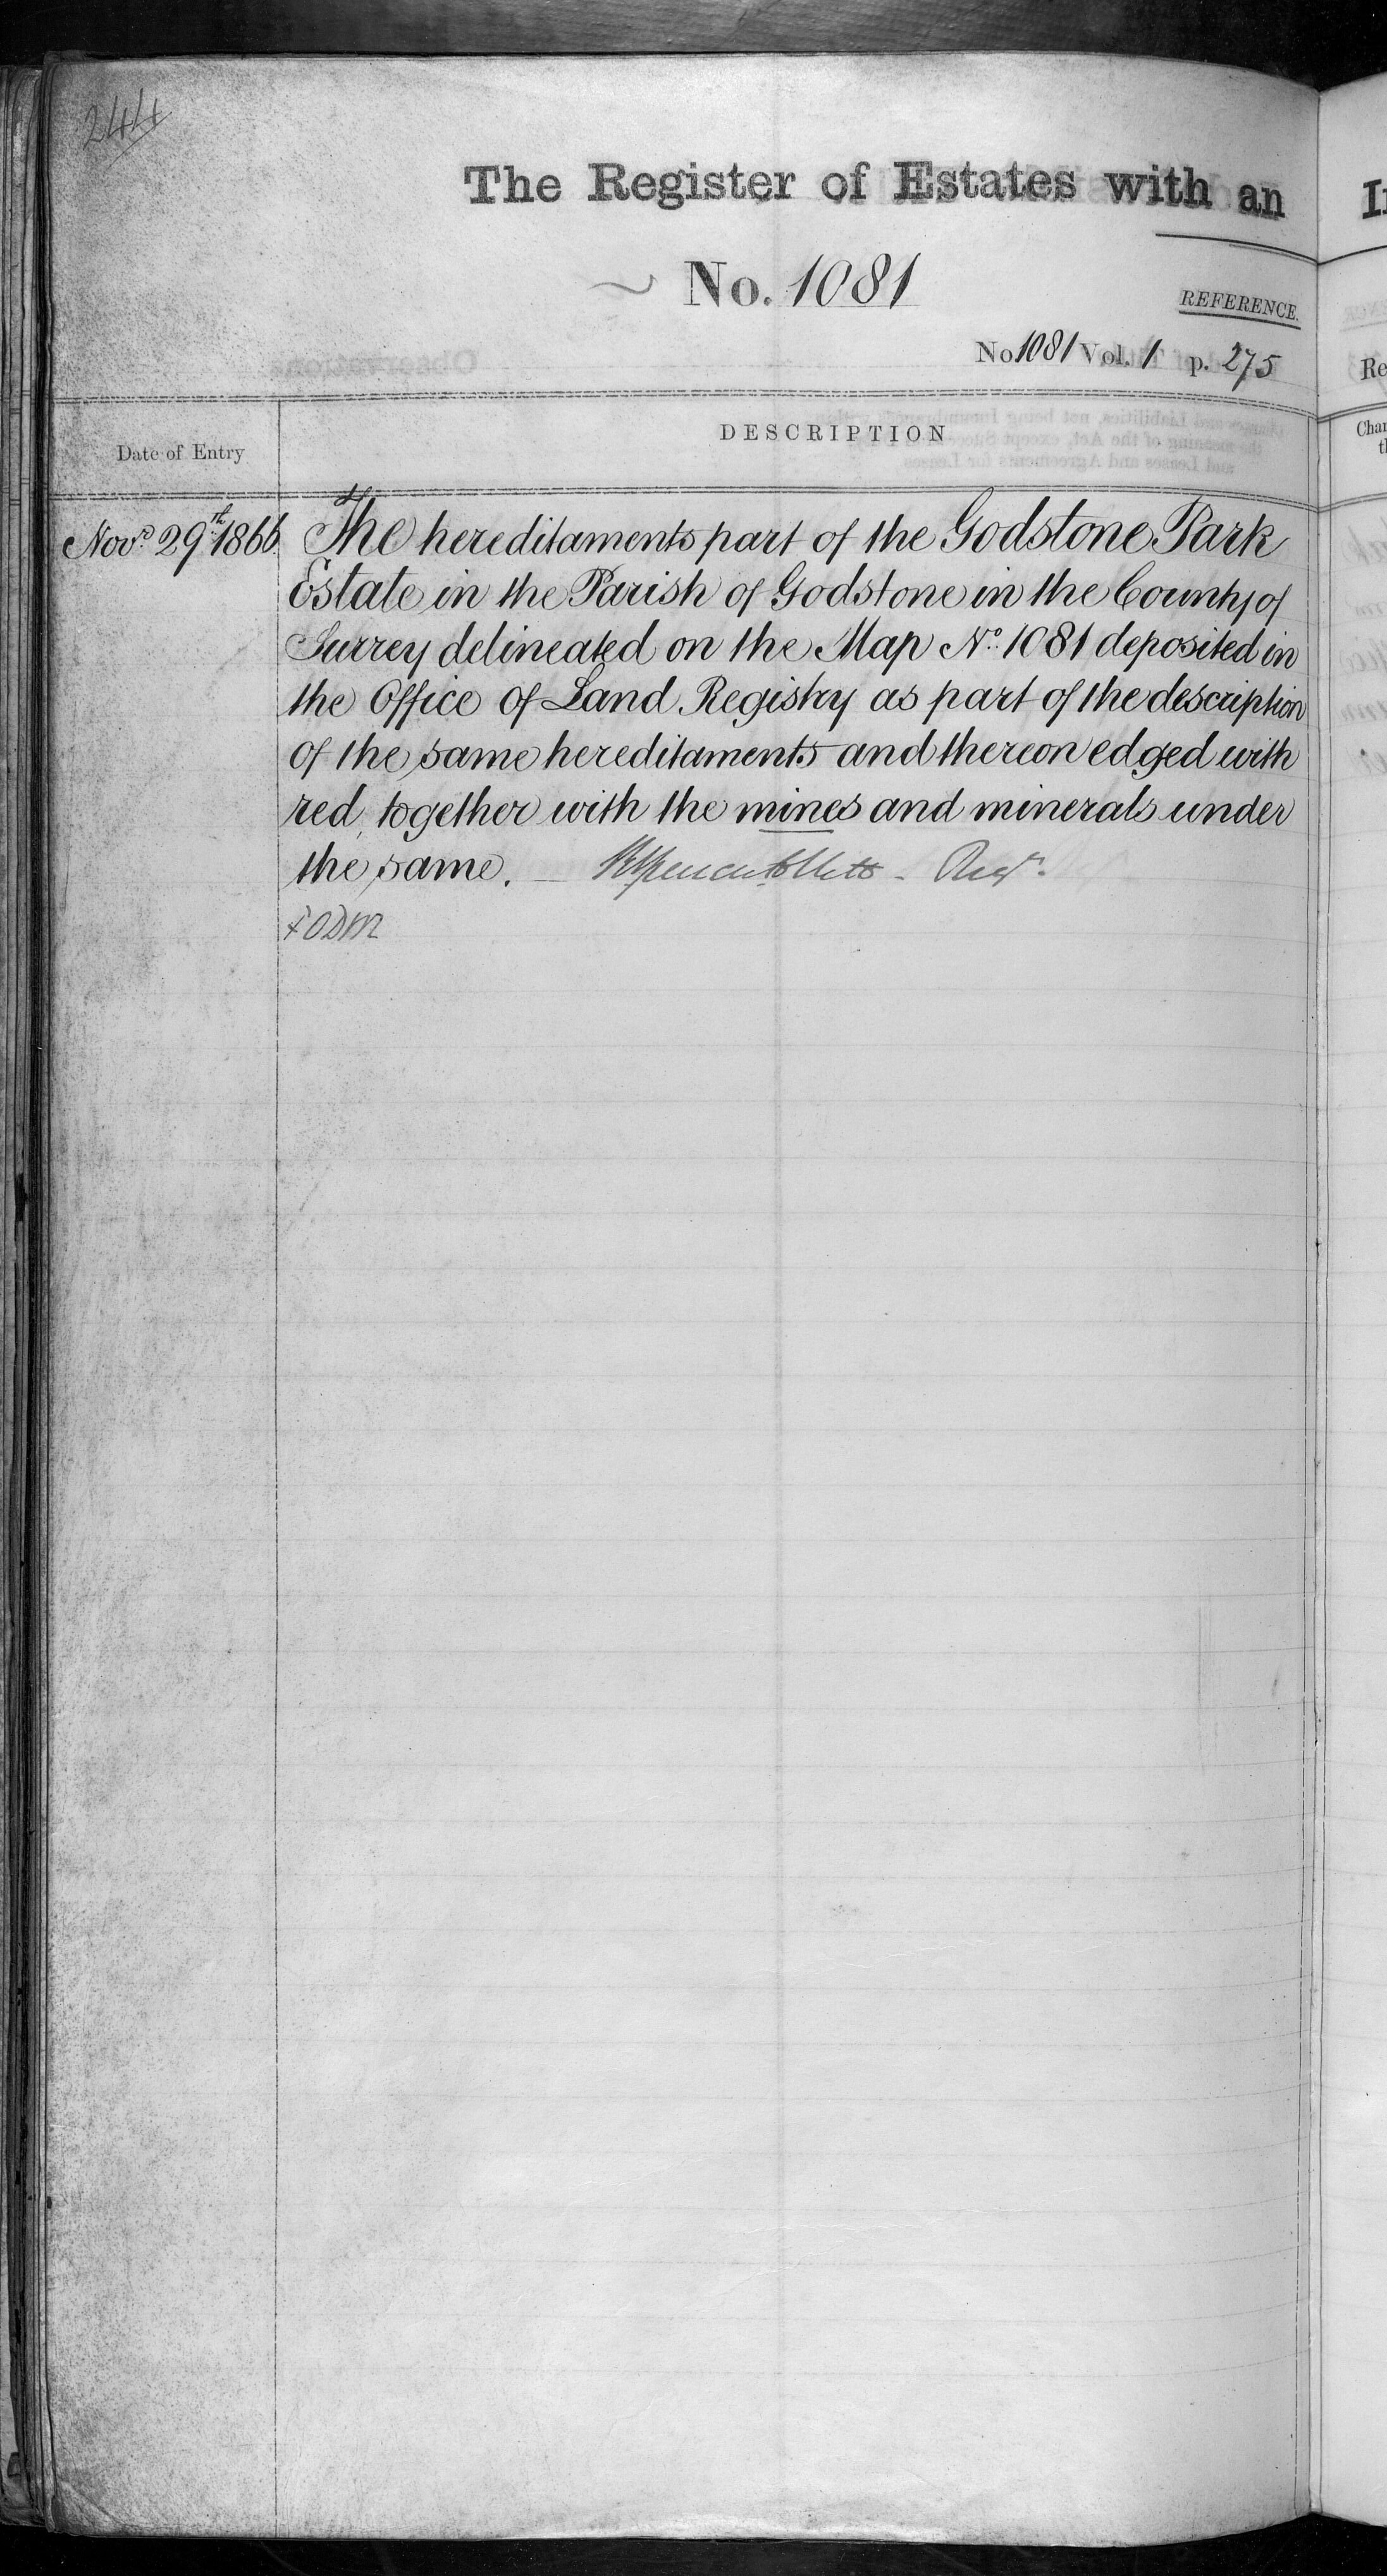 244
The Register of Estates with an
No. 1081
REFERENCE.
No 1081 Vol. 1 p. 275
Date of Entry
DESCRIPTION
Novr. 29th. 1866. The hereditaments part of the Godstone Park
Estate in the Parish of Godstone in the County of
Surrey delineated on the Map No. 1081 deposited in
the Office of Land Registry as part of the description
of the same hereditaments and thereon edged with
red, together with the mines and minerals under
the same. — Regr.
Re